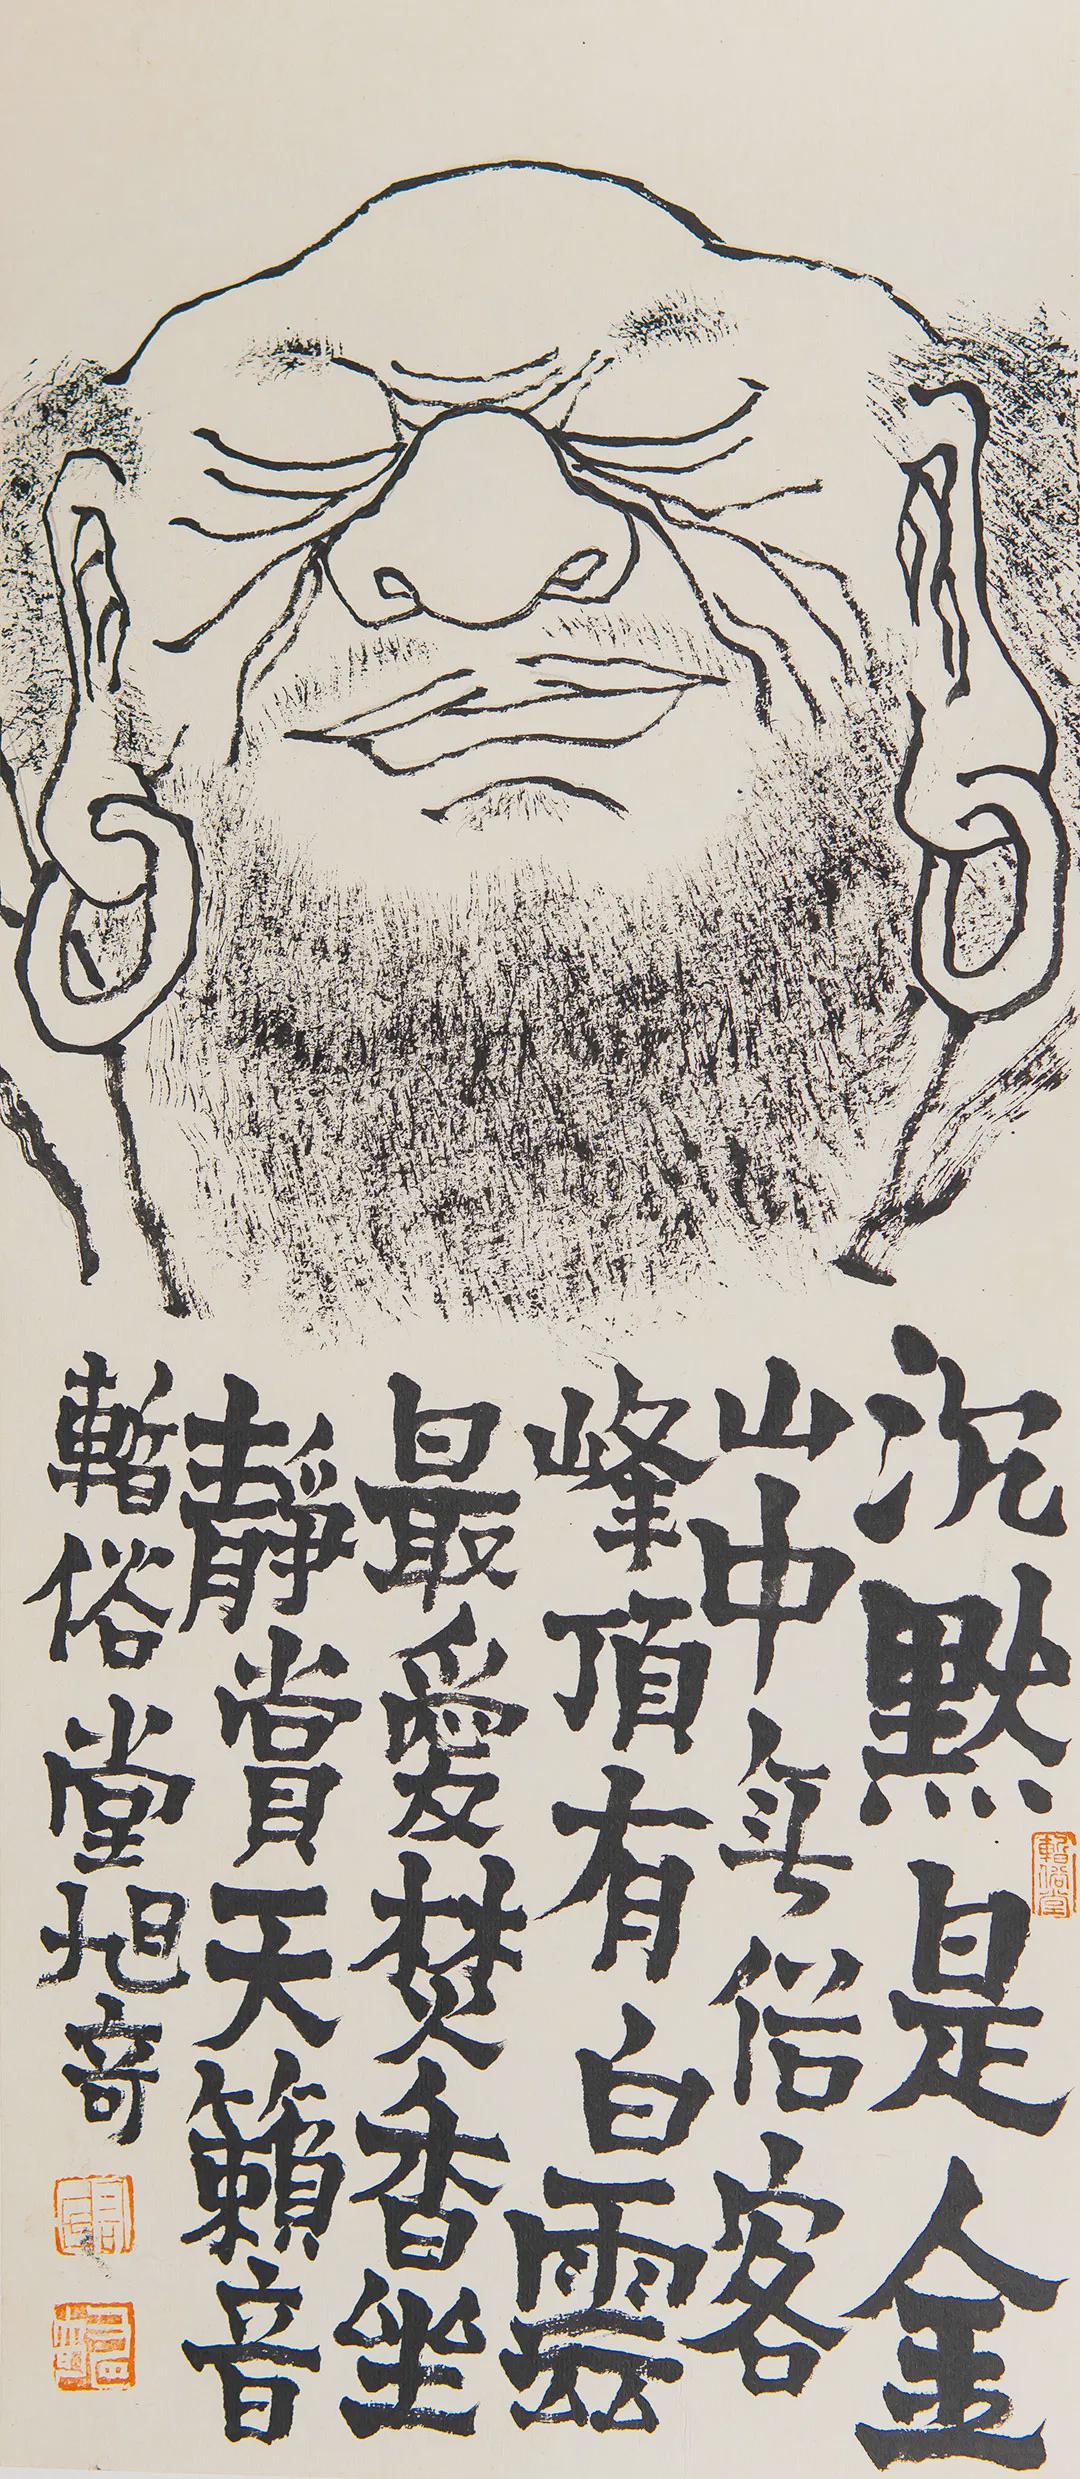 沉默是金
暫俗堂
山中無俗客
峰頂有白雲
最愛焚香坐
靜賞天籟音
暫俗堂旭竒